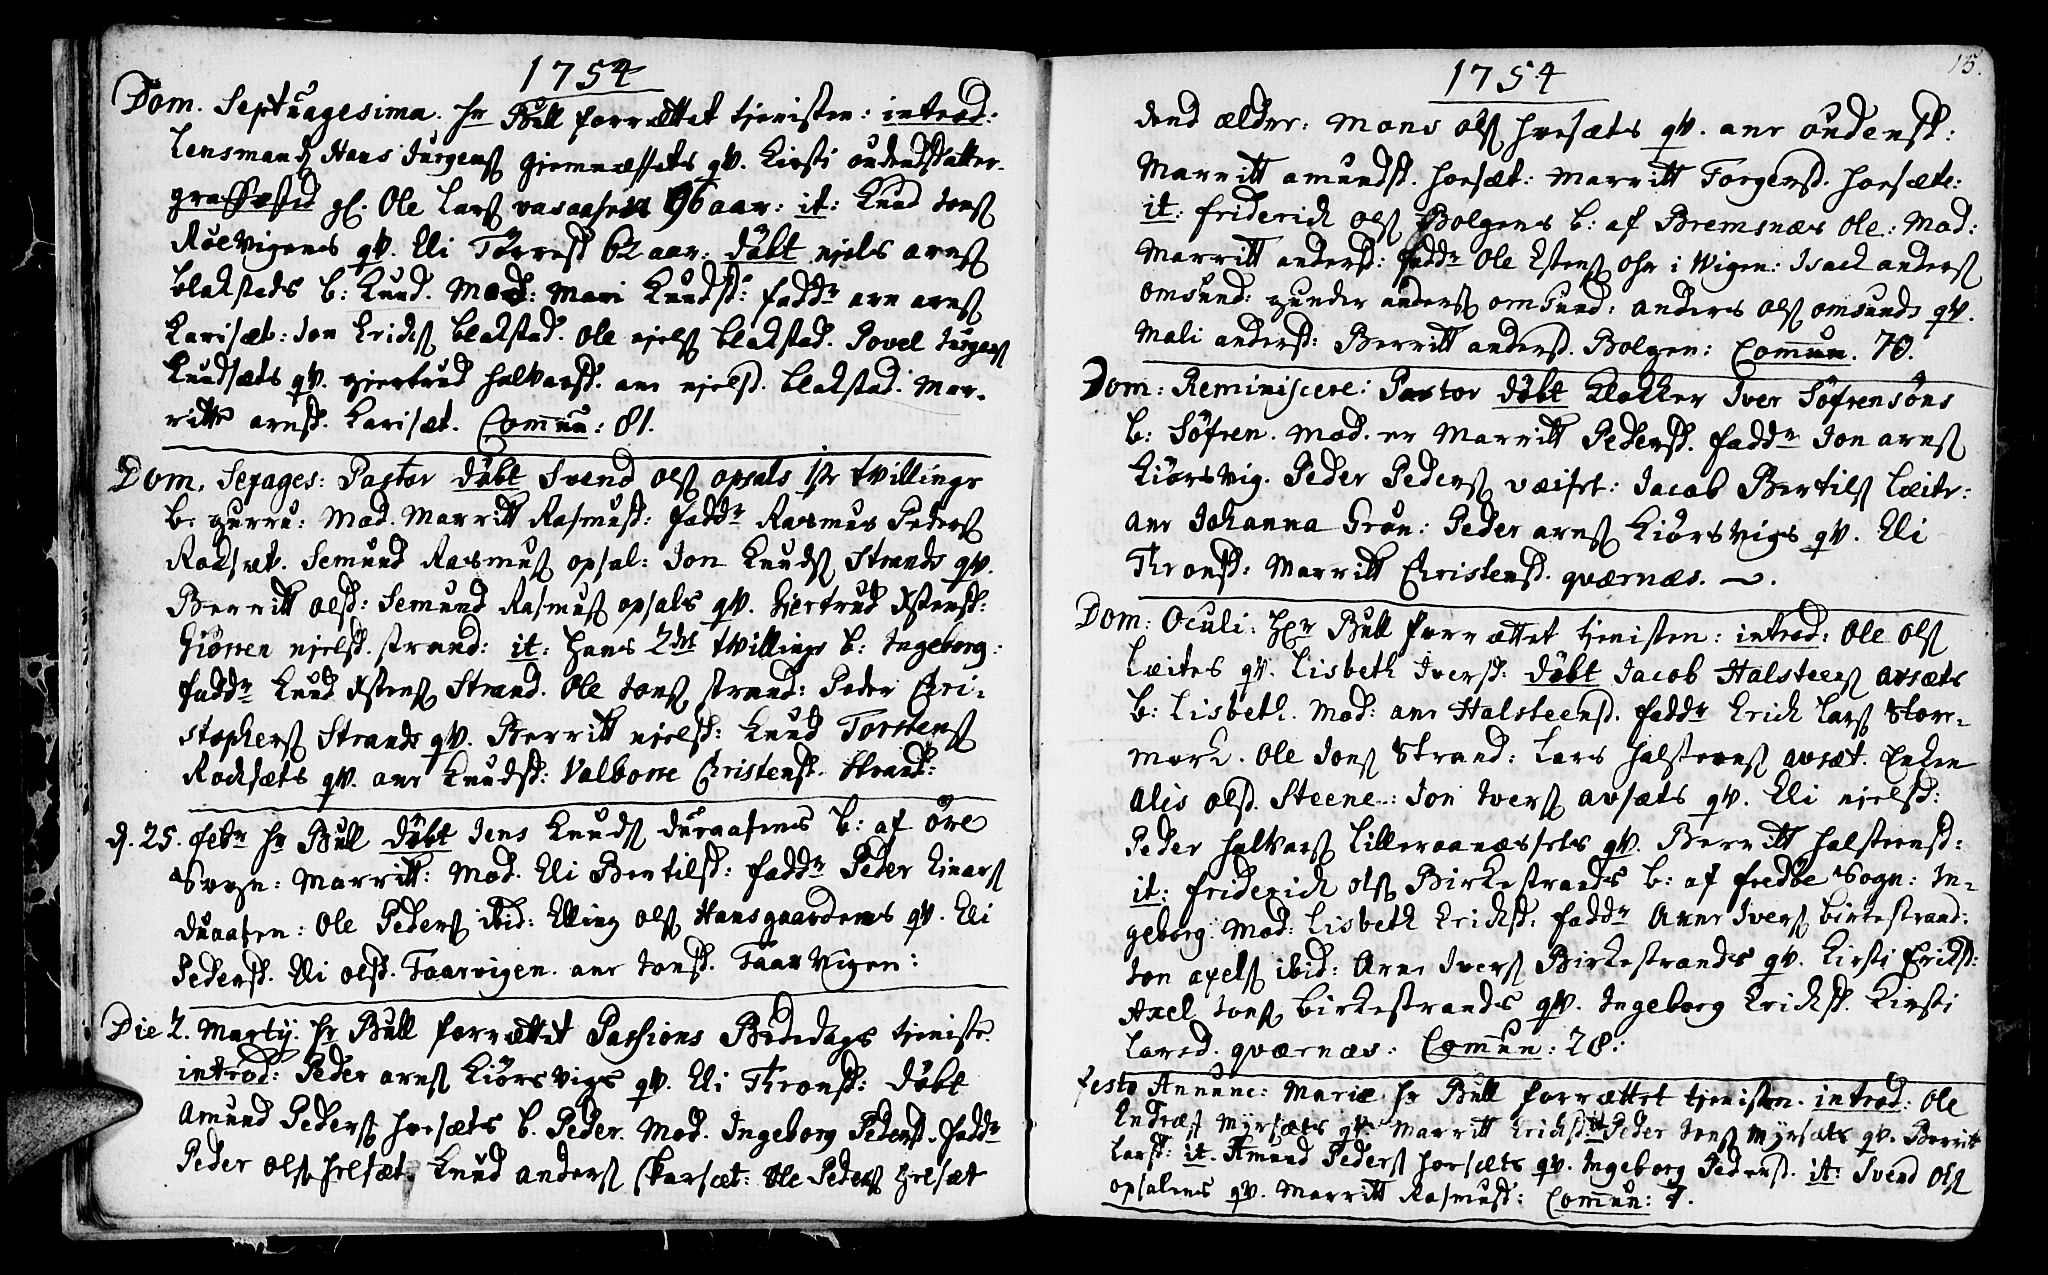 1754
Dom. Septuagesima. Hr Bull forrættet tienisten: introd:
Lensmand Hans Jurgens giemnæssets qv. Kirsti oudensdatter.
graffæstid gl. Ole Lars vasaasen 96 aar: it: Knud Jons
Røevigens qv. Eli Torresd 62 aar: døbt niels arns
blakstads b: Knud. Mod: Mari Knudsd: faddr arn arns
Karisæt: Jon Erichs blakstad. Ole niels blakstad. Povel Jurgens
Knudsæts qv. giertrud halvarsd. ane nielsd. blakstad. Mar-
ritt arnsd. Karisæt. Commun: 81.
Dom. Sexages: Pastor døbt Svend ols opsals 1ste tvillinge
b: gurru: Mod. Marritt Rasmusd: faddr Rasmus Peders
Roksæt. Semund Rasmus opsal: Jon Knuds Strands qv.
Berritt olsd: Semund Rasmus opsals qv. giertrud Estensd:
giøren nielsd. strand: it: hans 2den tvillinge b: Ingeborg:
faddr Knud Estens Strand. Ole Jons strand: Peder Chri-
stophers Strands qv. Berritt nielsd: Knud Torstens
Rocksæts qv. ane Knudsd: Valborre Christensd. Strand:
d. 25. febr hr Bull døbt Jens Knuds duraasens b: af öre
Sogn: Marritt: Mod. Eli Bertilsd: faddr Peder Einars
duraasen: Ole Peders ibid: Elling ols Hansgaardens qv. Eli
Pedersd. Eli olsd. Taarvigen. ane Jonsd. Taarvigen:
Die 2. Martij. hr Bull forrættet Passions Bededags tieniste
introd: Peder arns Kiörsvigs qv. Eli Thronsd: døbt
Amund Peders horsæts b. Peder. Mod. Ingeborg Pedersd. faddr
Peder ols horsæt. Knud anders skarsæt: Ole Peders horsæt
15.
1754
dend ælder: Mons ols horsæts qv. ane oudensd:
Marritt amundsd. horsæt: Marritt Torgersd. horsæt:
it: friderich ols Bolgens b: af Bremsnæs Ole: Mod:
Marritt andersd: faddr Ole Estens ohr i Wigen: Isach anders
omsund: gunder anders omsund: anders ols omsunds qv.
Mali andersd: Berritt andersd. Bolgen: Commun. 70.
Dom: Reminiscere: Pastor döbt Klokker Iver Söfrensöns
b: Söfren. Mod. er Marritt Pedersd. faddr Jon arns
Kiörsvig. Peder Peders væiset: Jacob Bertils Leite:
ane Johanna Grön: Peder arns Kiörsvigs qv. Eli
Thronsd: Marritt Christensd. qværnæs.
Dom: Oculi: Hr Bull forrættet tienisten: introd: Ole ols
Leites qv. Lisbeth Iversd: døbt Jacob Halsteens avsæts
b: Lisbeth. Mod: ane Halsteensd. faddr Erich Lars Stor-
mork. Ole Jons Strand: Lars halsteens avsæt. Enken
Alis olsd. Steene: Jon Ivers avsæts qv. Eli nielsd:
Peder halvars Lilleraanæssets qv. Berritt halsteensd:
it: friderich ols Birkestrands b: af fredöe Sogn: In-
geborg. Mod: Lisbeth Erichsd: faddr Arne Ivers birkestrand:
Jon axels ibid: Arne Ivers Birkestrands qv. Kirsti Erichsd:
Axel Jons birkestrands qv. Ingeborg Erichsd. Kirsti
Larsd. qværnæs: Commun: 28:
festo Annunc: Mariæ hr Bull forrættet tienisten. introd: Ole
Endres Myrsæts qv. Marritt Erichsd it Peder Jons Myrsæts qv. Berritt
Larsd: it. Amund Peders horsæts qv. Ingeborg Pedersd. it: Svend Ols
opsalens qv. Marritt Rasmusd: Commun: 7.